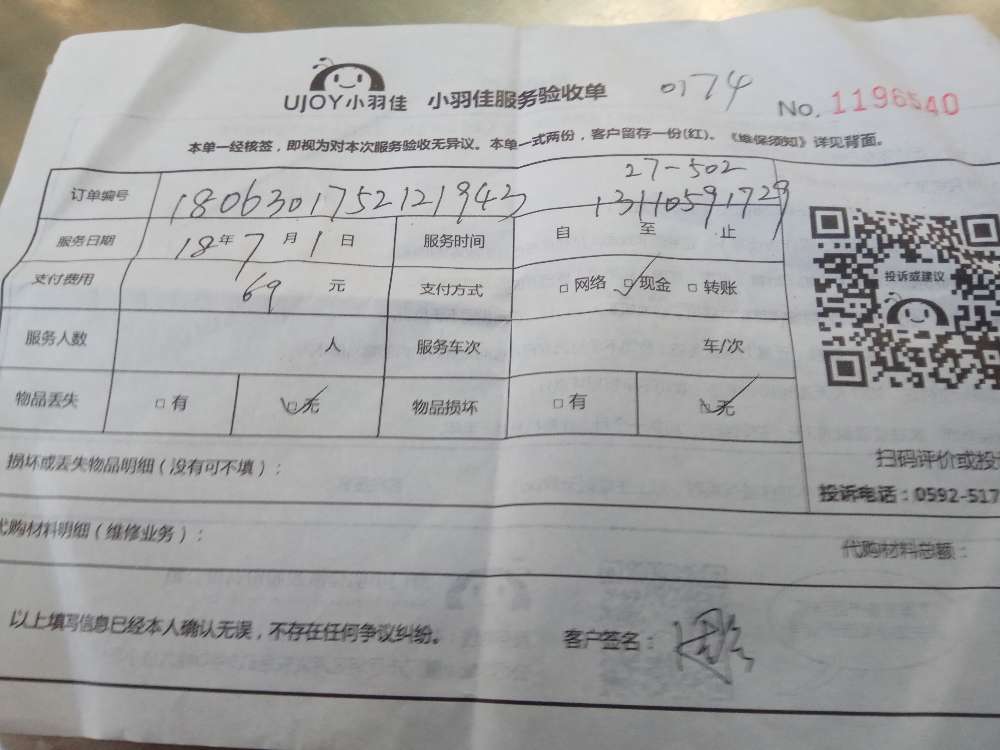 UJOY小羽佳 小羽佳服务验收单 0174 No. 1196540
本单一经核签，即视为对本次服务验收无异议。本单一式两份，客户留存一份(红)。《维保须知》详见背面。
27-502
订单编号 1806301752121943 13110591729
服务日期 18年7月1日 服务时间 自 至 止
支付费用 69 元 支付方式 □网络 ☑现金 □转账
投诉或建议
服务人数 人 服务车次 车/次
物品丢失 □有 ☑无 物品损坏 □有 ☑无
损坏或丢失物品明细（没有可不填）：
扫码评价或投
投诉电话：0592-517
代购材料明细（维修业务）：
代购材料总额：
以上填写信息已经本人确认无误，不存在任何争议纠纷。 客户签名：